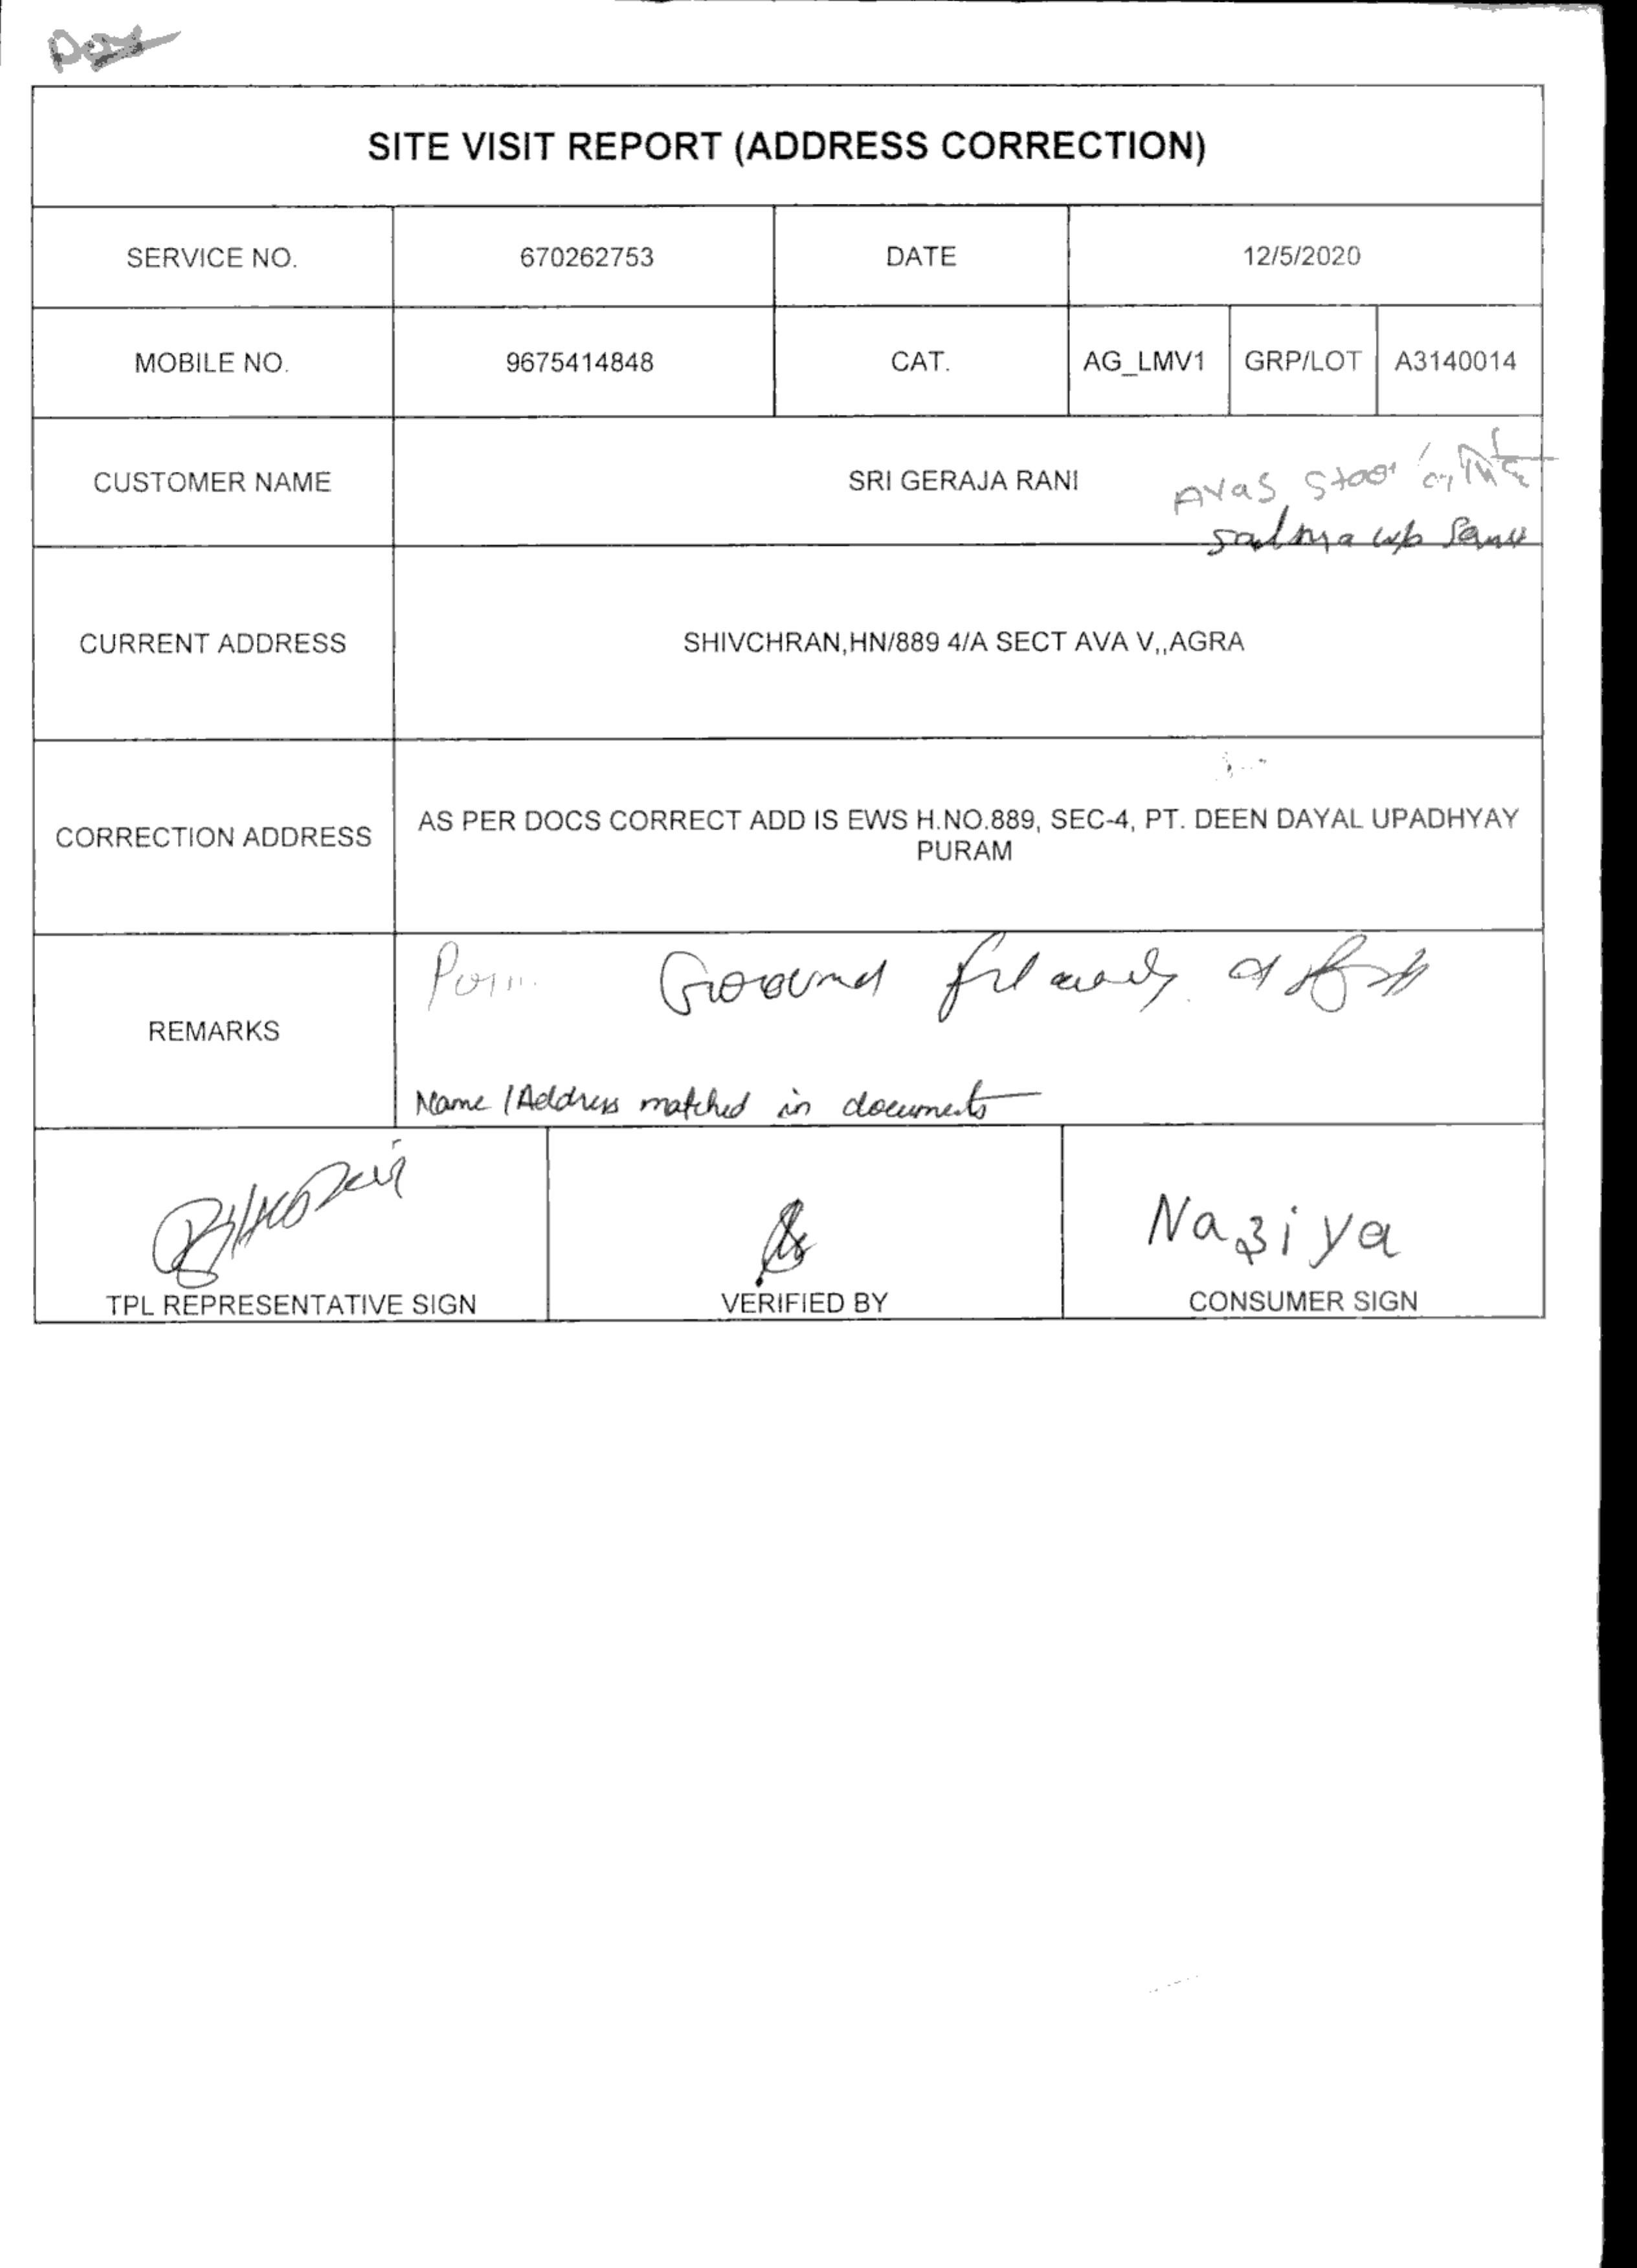 SITE VISIT REPORT (ADDRESS CORRECTION)
SERVICE NO. 670262753 DATE 12/5/2020
MOBILE NO. 9675414848 CAT. AG_LMV1 GRP/LOT A3140014
CUSTOMER NAME SRI GERAJA RANI
Avas
Salma w/o Sanu
CURRENT ADDRESS SHIVCHRAN,HN/889 4/A SECT AVA V,,AGRA
CORRECTION ADDRESS AS PER DOCS CORRECT ADD IS EWS H.NO.889, SEC-4, PT. DEEN DAYAL UPADHYAY
PURAM
Groound
REMARKS
Name / Address matched in documents
Naziya
TPL REPRESENTATIVE SIGN VERIFIED BY CONSUMER SIGN